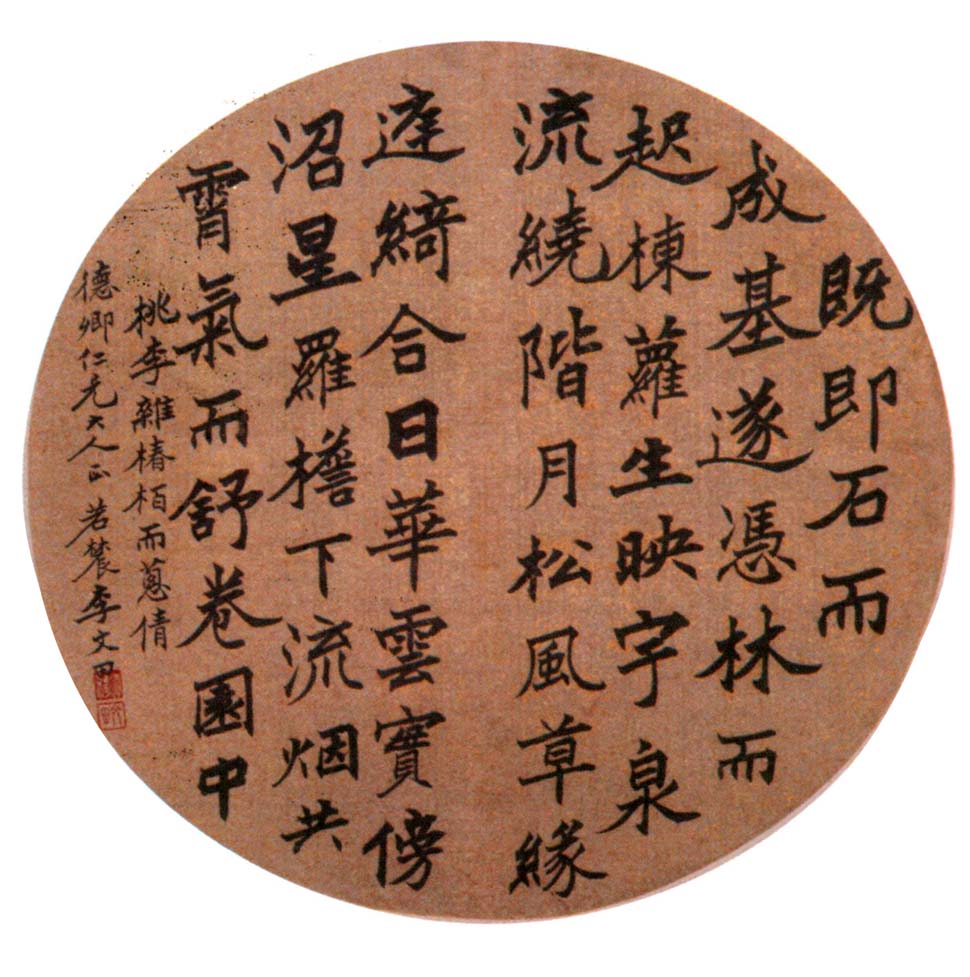 既即石而
成基遂憑林而
起棟蘿生映宇泉
流繞階月松風草緣
庭綺合日華雲實傍
沼星羅檐下流烟共
霄氣而舒卷園中
桃李雜椿栢而蔥倩
德卿仁兄大人正 若農李文田